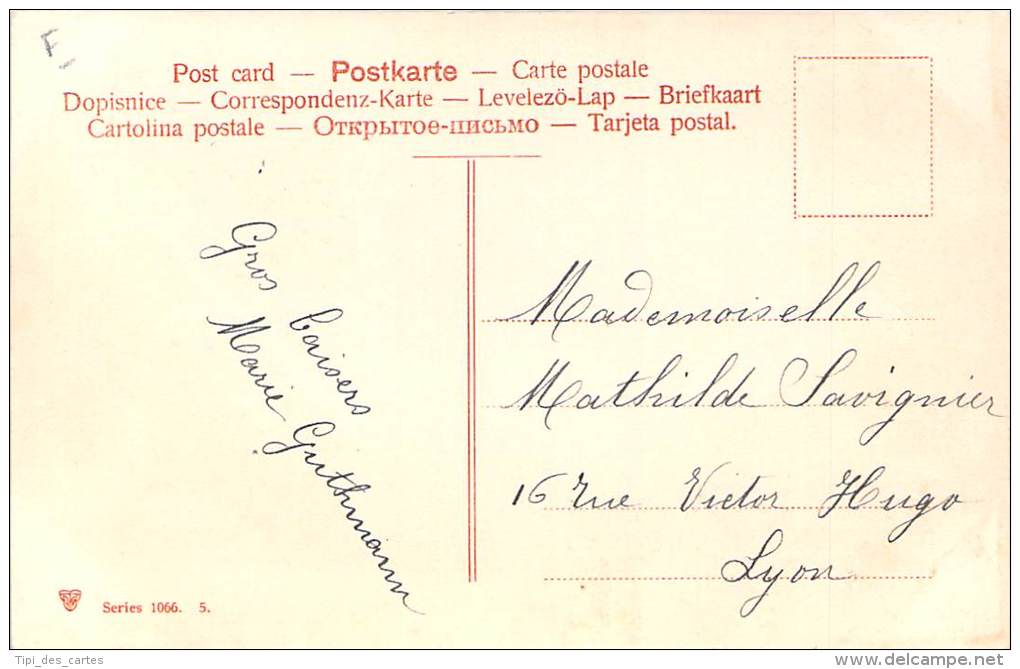 F
Post card — Postkarte — Carte postale
Dopisnice — Correspondenz-Karte — Levelezö-Lap — Briefkaart
Cartolina postale — Открытое-письмо — Tarjeta postal.
Gros baisers
Marie Guthmann
Mademoiselle
Mathilde Savignier
16 rue Victor Hugo
Lyon
Series 1066. 5.
Tipi_des_cartes
www.delcampe.net